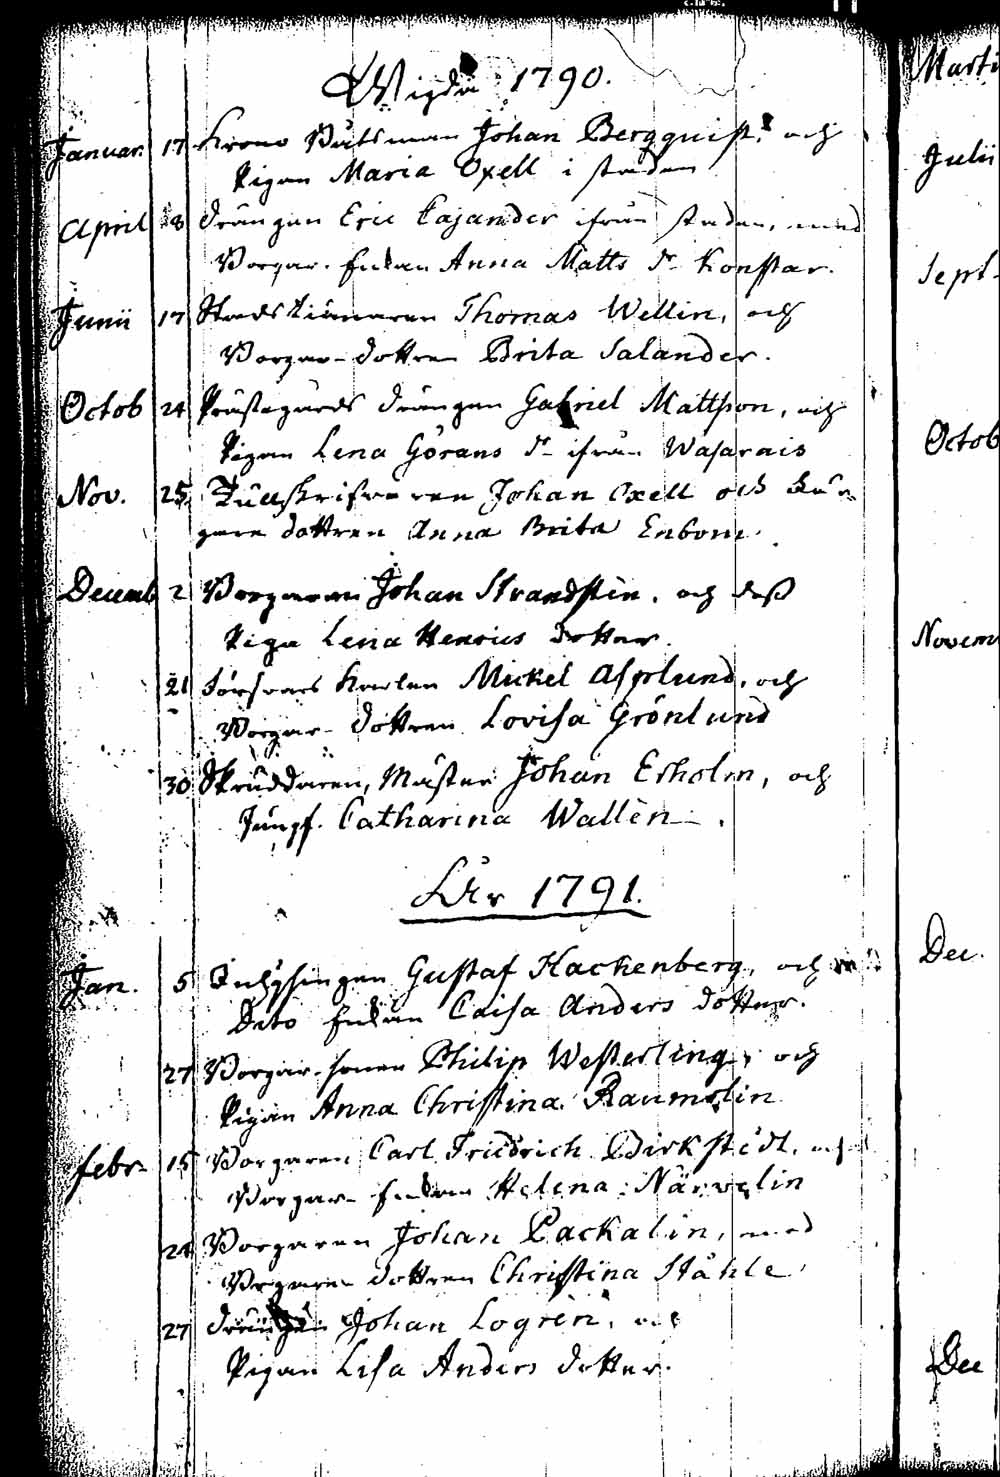 Wigda 1790.
Januar. 17 Krono Båtsman Johan Bergquist. och
Pigan Maria Oxell i staden
April 8 Drängen Eric Cajander ifrån staden, med
Borgar. Enkan Anna Matts Dr Konstar.
Junii 17 Stads tienaren Thomas Wellin, och
Borgar-dottren Brita Salander.
Octob 24 Prästegårds drängen Gabriel Mattsson, och
Pigan Lena Görans Dr ifrån Wasarais
Nov. 25 Tullskrifvaren Johan Oxell och Bor-
gare dottren Anna Brita Enbom.
Decemb 2 Borgaren Johan Strandstèn. och dess
Piga Lena Henrics dotter.
21 Förswars Karlen Mickel Asplund, och
Borgar-dottren Lovisa Grönlund
30 Skräddaren, Mäster Johan Erholm, och
Jungf. Catharina Wallèn.
År 1791.
Jan. 5 Inhysingen Gustaf Hackenberg, och
Dito Enkan Caisa Anders dotter.
27 Borgar-sonen Philip Westerling, och
Pigan Anna Christina Raumolin
Febr. 15 Borgaren Carl Friedrich Birkstedt, och
Borgar-Enkan Helena Närvelin
24 Borgaren Johan Packalin, med
Borgare dottren Christina Ståhle
27 Drängen Johan Logrèn, och
Pigan Lisa Anders dotter.
Marti
Julii
Sept-
Octob
Novem
Dec.
Dec